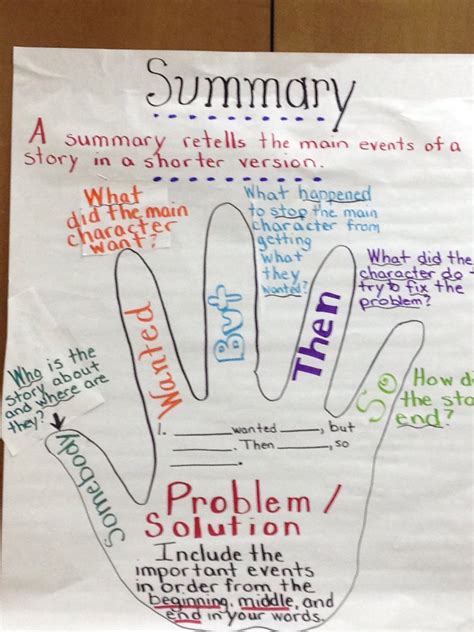 Summary
A summary retells the main events of a
story in a shorter version.
What
did the main
character
want?
What happened
to stop the main
character from
getting
what
they
wanted?
What did the
character do
try to fix the
problem?
Who is the
story about
and where are
they?
How di
the sto
end?
Somebody
Wanted
But
Then
So
1. ______ wanted ____, but
______. Then ____, so
______.
Problem /
Solution
Include the
important events
in order from the
beginning, middle, and
end in your words.